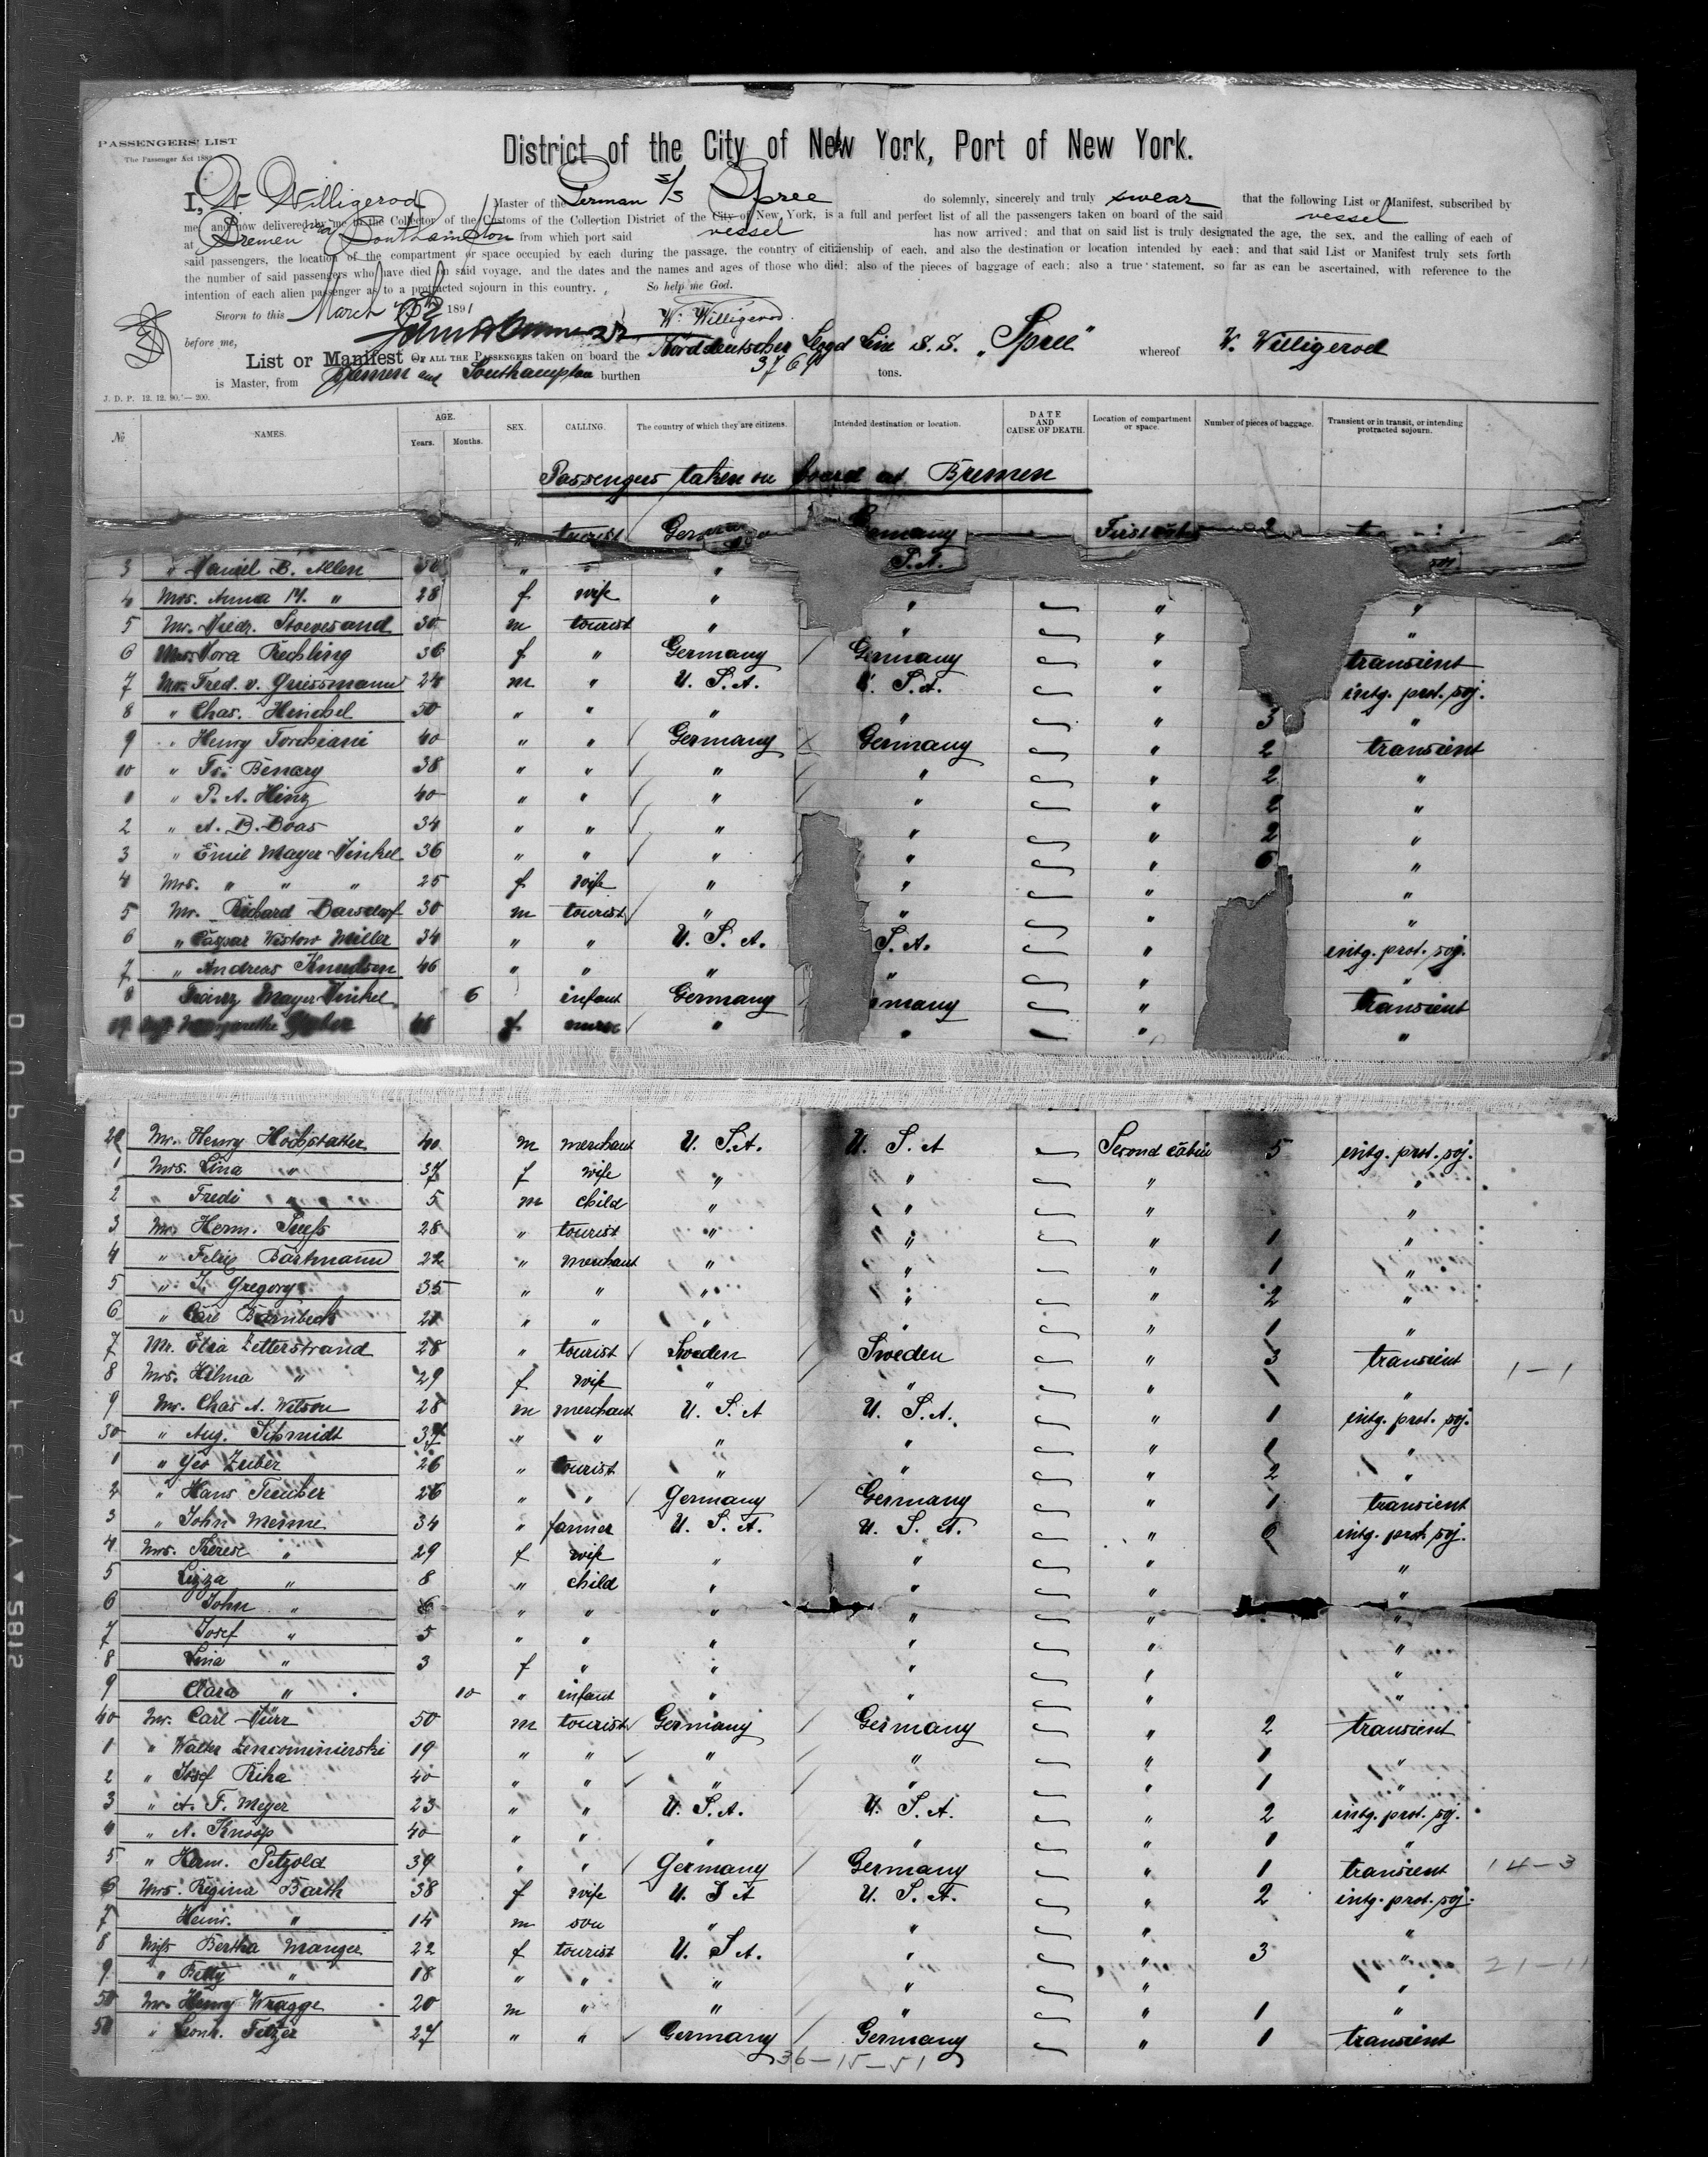 PASSENGERS' LIST
The Passenger Act 188
District of the City of New York, Port of New York.
I, W. Willigerod Master of the German S/S Spree do solemnly, sincerely and truly swear that the following List or Manifest, subscribed by
me, and now delivered by me to the Collector of the Customs of the Collection District of the City of New York, is a full and perfect list of all the passengers taken on board of the said vessel
at Bremen via Southampton from which port said vessel has now arrived; and that on said list is truly designated the age, the sex, and the calling of each of
said passengers, the location of the compartment or space occupied by each during the passage, the country of citizenship of each, and also the destination or location intended by each; and that said List or Manifest truly sets forth
the number of said passengers who have died on said voyage, and the dates and the names and ages of those who died; also of the pieces of baggage of each; also a true statement, so far as can be ascertained, with reference to the
intention of each alien passenger as to a protracted sojourn in this country. So help me God.
Sworn to this March 1891 W. Willigerod
before me,
List or Manifest OF ALL THE PASSENGERS taken on board the Norddeutscher Lloyd Line S.S. „Spree" whereof W. Willigerod
is Master, from Bremen and Southampton burthen 3769 tons.
J. D. P. 12. 12. 90. — 200.
No. NAMES. AGE. Years. Months. SEX. CALLING. The country of which they are citizens. Intended destination or location. DATE AND CAUSE OF DEATH. Location of compartment or space. Number of pieces of baggage. Transient or in transit, or intending protracted sojourn.
Passengers taken on board at Bremen
" tourist many First 2
3 " Daniel B. Allen " " S.A.
4 Mrs. Anna M. " 28 f wife " " " "
5 Mr. Diedr. Stoevesand 30 m tourist " " " "
6 Mrs. Nora Rechling 36 f " Germany Germany " transient
7 Mr. Fred. v. Griessmann 24 m " U. S. A. U. S. A. " intg. prot. soj.
8 " Chas. Henschel 50 " " " " " 3 "
9 " Henry Torchiani 40 " " Germany Germany " 2 transient
10 " Benary 38 " " " " " 2 "
1 " P. A. Hinz 40 " " " " " 2 "
2 " A. B. Boas 34 " " " " " 2 "
3 " Emil Mayer Dinkel 36 " " " " " 6 "
4 Mrs. " " " 25 f wife " " " "
5 Mr. Richard Barsdorf 30 m tourist " " " "
6 " Caspar Wistow Miller 34 " " U. S. A. S. A. " intg. prot. soj.
7 " Andreas Knudsen 46 " " " " " "
8 Franz Mayer Dinkel 6 infant Germany many " transient
19 Margarethe f nurse " " " "
20 Mr. Henry Hochstatter 40 m merchant U. S. A. U. S. A Second cabin 5 intg. prot. soj.
1 Mrs. Lina " 37 f wife " " " "
2 " Fredi " 5 m child " " " "
3 Mr. Herm. Suess 28 " tourist " " " 1 "
4 " Felix Bartmann 22 " merchant " " " 1 "
5 " Gregory 35 " " " " " 2 "
6 " Carl 21 " " " " " 1 "
7 Mr. Elia Zetterstrand 28 " tourist Sweden Sweden " 3 transient 1-1
8 Mrs. Hilma " 29 f wife " " " "
9 Mr. Chas A. Wilson 28 m merchant U. S. A U. S. A. " 1 intg. prot. soj.
30 " Aug. Schmidt 37 " " " " " 1 "
1 " Geo Zuber 26 " tourist " " " 2 "
2 " Hans Teuber 26 " " Germany Germany " 1 transient
3 " John Menne 34 " farmer U. S. A. U. S. A. " 6 intg. prot. soj.
4 Mrs. Therese " 29 f wife " " " "
5 Lizza " 8 " child " " " "
6 John " 6 " " " " " "
7 Josef " 5 " " " " " "
8 Lina " 3 f " " " " "
9 Clara " 10 " infant " " " "
40 Mr. Carl Dürr 50 m tourist Germany Germany " 2 transient
1 " Walter Zencominierski 19 " " " " " 1 "
2 " Josef Riha 40 " " " " " 1 "
3 " A. F. Meyer 23 " " U. S. A. U. S. A. " 2 intg. prot. soj.
4 " A. Knoop 40 " " " " " 1 "
5 " Herm. Petzold 39 " " Germany Germany " 1 transient 14-3
6 Mrs. Regina Barth 38 f wife U. S A U. S. A. " 2 intg. prot. soj.
7 Heinr. " 14 m son " " " "
8 Miss Bertha Manger 22 f tourist U. S. A. " " 3 "
9 " Betty " 18 " " " " " " 21-11
50 Mr. Henry Wragge 20 m " " " " 1 "
51 " Leonh. Fetzer 27 " " Germany Germany " 1 transient
36-15-51
DUPONT SAFETY 2185